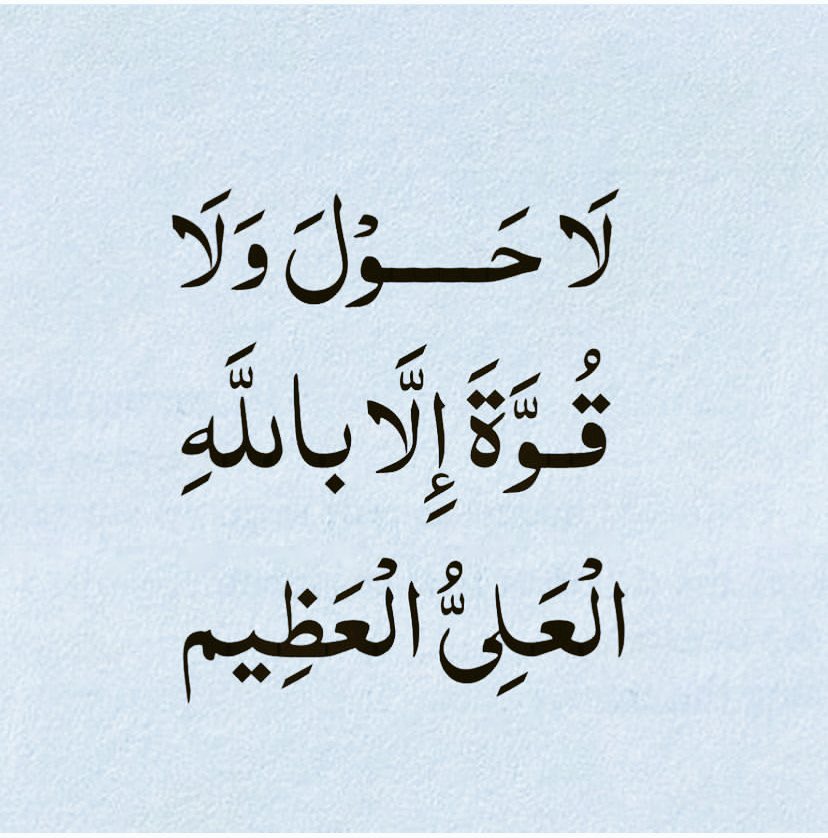 لَا حَـــوْلَ وَلَا
قُـوَّةَ إِلَّا بالله
الْعَلِىُّ الْعَظِيم